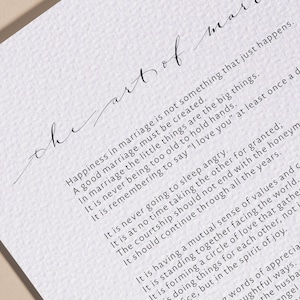 the art of marri
Happiness in marriage is not something that just happens.
A good marriage must be created.
In marriage the little things are the big things.
It is never being too old to hold hands.
It is remembering to say "I love you" at least once a d
It is never going to sleep angry.
It is at no time taking the other for granted.
The courtship should not end with the honeym
It should continue through all the years.
It is having a mutual sense of values and
It is standing together facing the world.
It is forming a circle of love that gather
doing things for each other, not
ice, but in the spirit of joy.
words of appreci
ghtful ways.
he husb